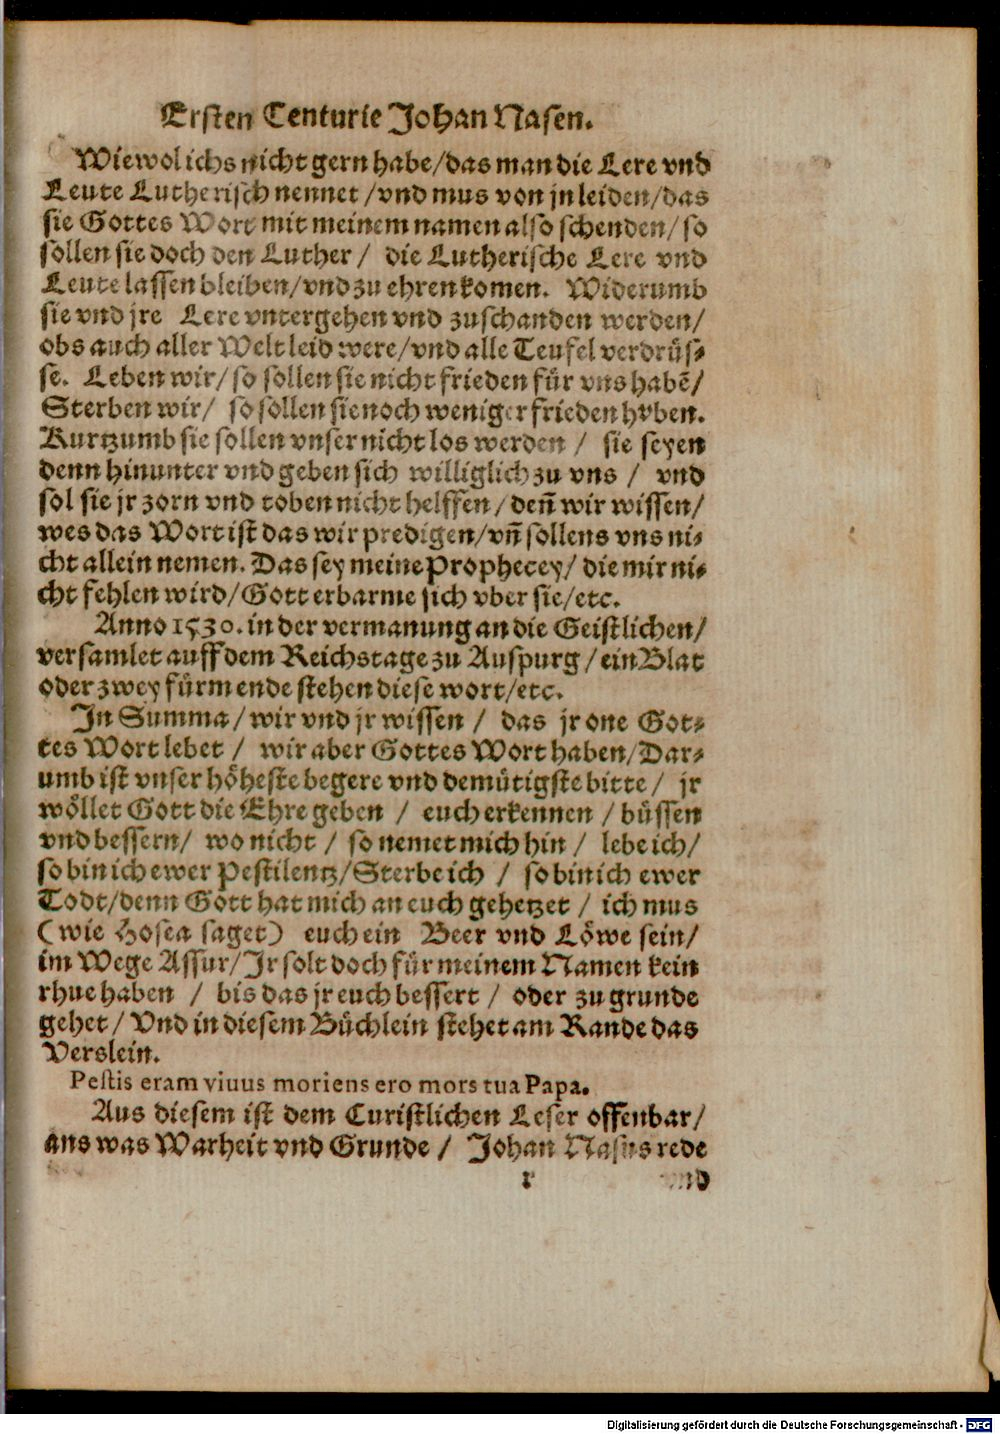 Ersten Centurie Johan Nasen.
Wiewol ichs nicht gern habe/das man die Lere vnd
Leute Lutherisch nennet/vnd mus von jn leiden/das
sie Gottes Wort mit meinem namen also schenden/so
sollen sie doch den Luther/ die Lutherische Lere vnd
Leute lassen bleiben/vnd zu ehren komen. Widerumb
sie vnd jre Lere vntergehen vnd zuschanden werden/
obs auch aller Welt leid were/vnd alle Teufel verdrüs⸗
se. Leben wir/so sollen sie nicht frieden für vns habẽ/
Sterben wir/ so sollen sie noch weniger frieden hvben.
Kurtzumb sie sollen vnser nicht los werden / sie seyen
denn hinunter vnd geben sich williglich zu vns / vnd
sol sie jr zorn vnd toben nicht helffen/deñ wir wissen/
wes das Wort ist das wir predigen/vñ sollens vns ni⸗
cht allein nemen. Das sey meine Prophecey/die mir ni⸗
cht fehlen wird/Gott erbarme sich vber sie/etc.
Anno 1530. in der vermanung an die Geistlichen/
versamlet auff dem Reichstage zu Auspurg/ein Blat
oder zwey fürm ende stehen diese wort/etc.
In Summa/wir vnd jr wissen / das jr one Got⸗
tes Wort lebet / wir aber Gottes Wort haben/Dar⸗
umb ist vnser höheste begere vnd demütigste bitte/ jr
wöllet Gott die Ehre geben / euch erkennen / büssen
vnd bessern/ wo nicht / so nemet mich hin / lebe ich/
so bin ich ewer Pestilentz/Sterbe ich / so bin ich ewer
Todt/denn Gott hat mich an euch gehetzet / ich mus
(wie Hosea saget) euch ein Beer vnd Löwe sein/
im Wege Assur/Jr solt doch für meinem Namen kein
rhue haben / bis das jr euch bessert / oder zu grunde
gehet/ Vnd in diesem Büchlein stehet am Rande das
Verslein.
Pestis eram viuus moriens ero mors tua Papa.
Aus diesem ist dem Curistlichen Leser offenbar/
ans was Warheit vnd Grunde / Johan Nasus rede
r
Digitalisierung gefördert durch die Deutsche Forschungsgemeinschaft - DFG